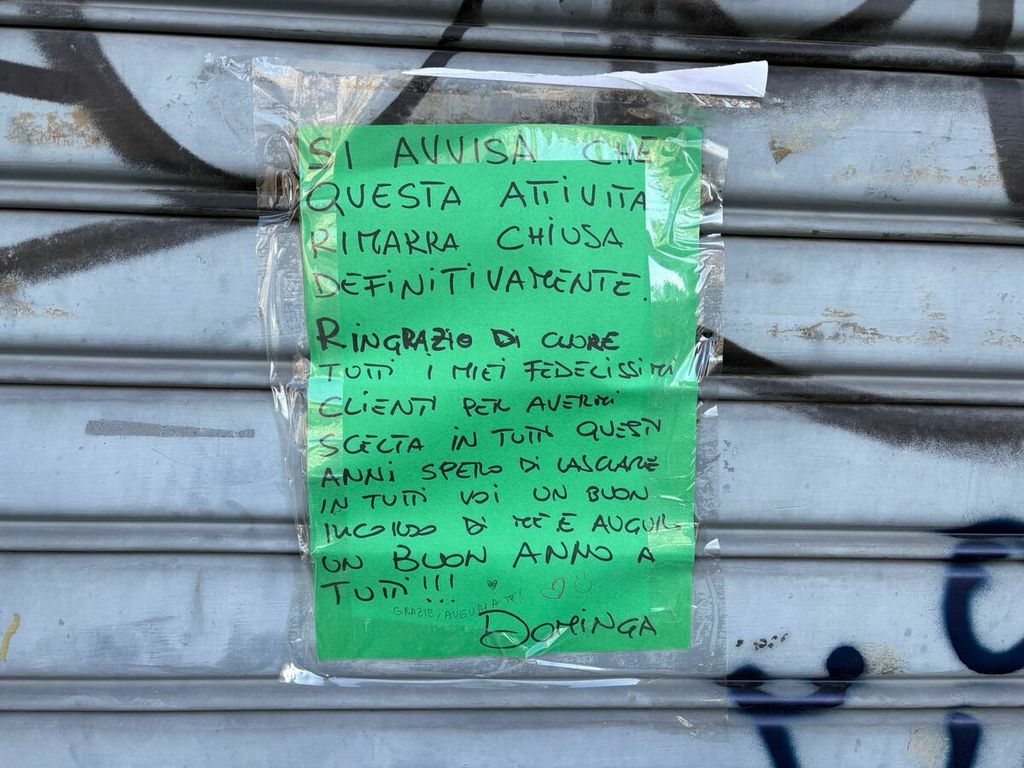 SI AVVISA CHE
QUESTA ATTIVITA
RIMARRA CHIUSA
DEFINITIVAMENTE.
RINGRAZIO DI CUORE
TUTTI I MIEI FEDELISSIMI
CLIENTI PER AVERMI
SCELTA IN TUTTI QUESTI
ANNI SPERO DI LASCIARE
IN TUTTI VOI UN BUON
RICORDO DI ME E AUGURO
UN BUON ANNO A
TUTTI!!!
GRAZIE, AUGURI A TE!
DOMINGA